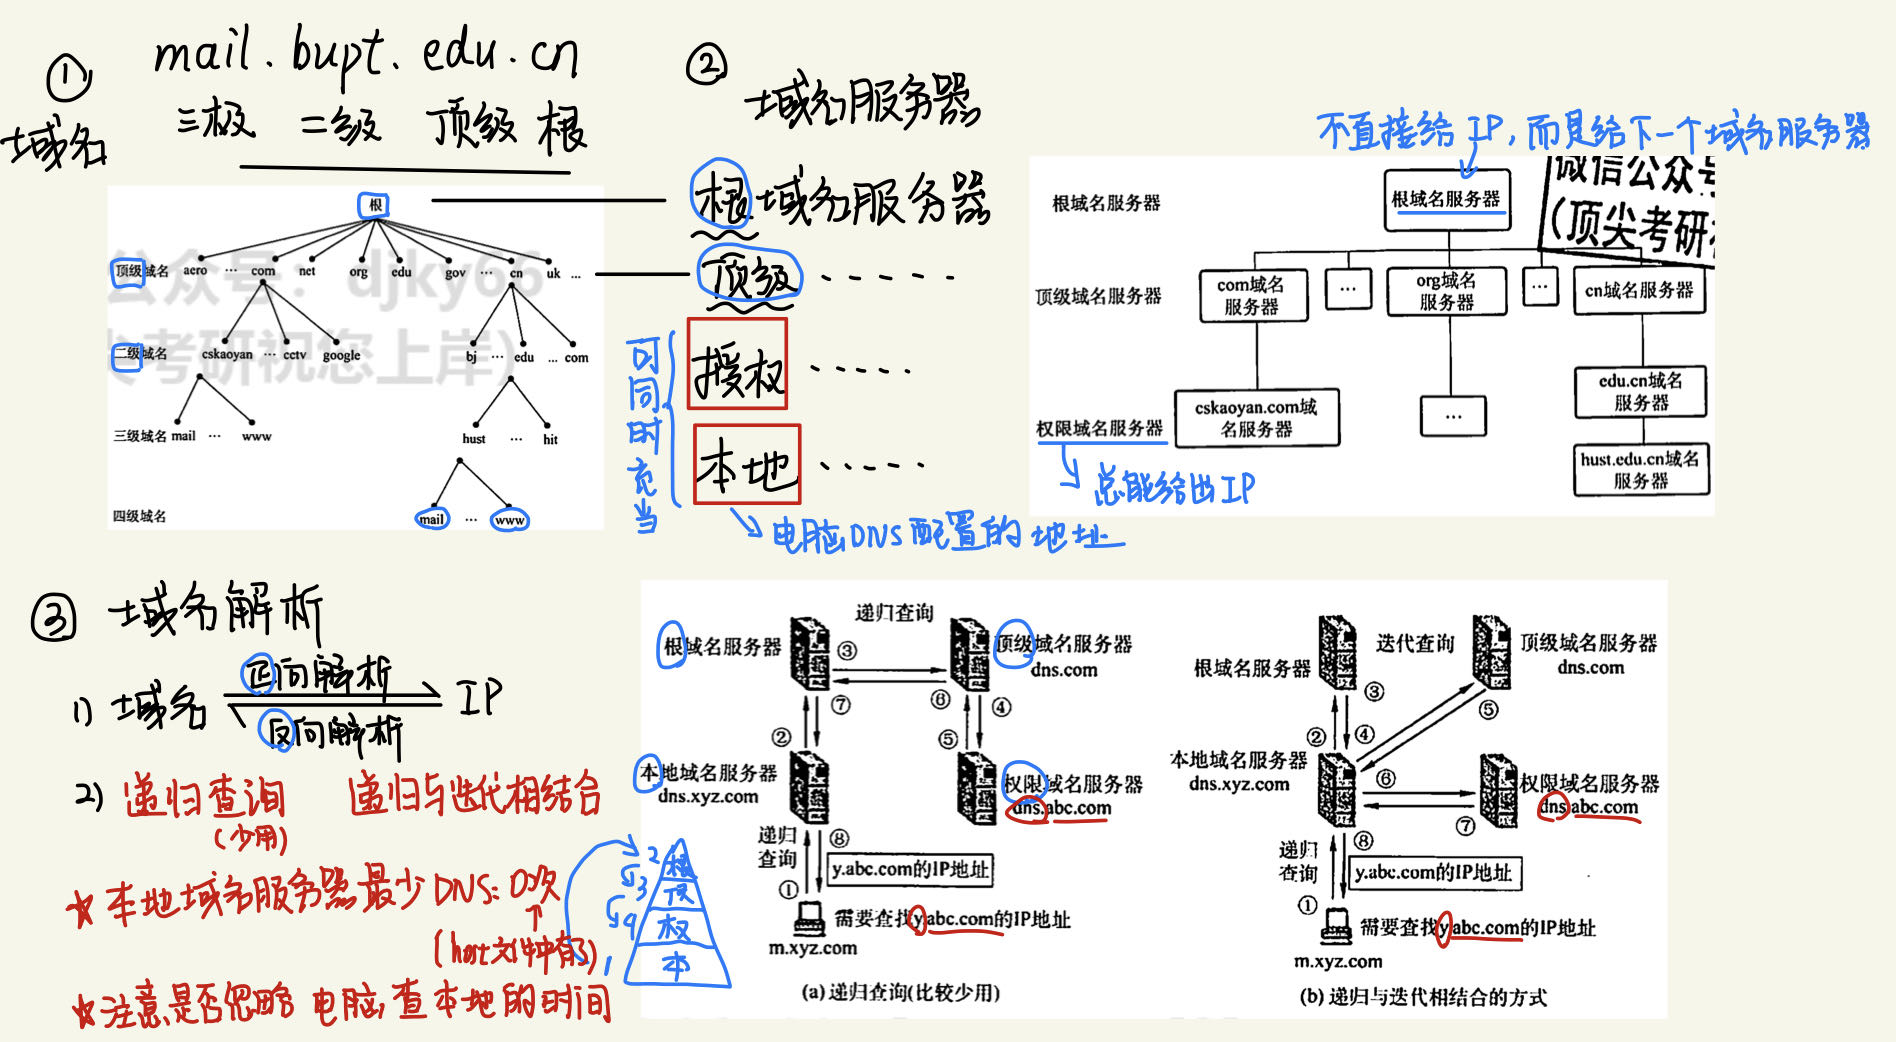 ①
mail.bupt.edu.cn
域名
三极 二级 顶级 根
根
顶级域名 aero … com net org edu gov … cn uk …
公众号：djky66
二级域名 cskaoyan … cctv google bj … edu … com
考研祝您上岸)
三级域名 mail … www hust … hit
四级域名 mail … www
②
域名服务器
根域名服务器
顶级 ......
授权 ......
本地 ......
可同时充当
电脑DNS配置的地址
不直接给IP,而是给下一个域名服务器
微信公众号
(顶尖考研
根域名服务器 根域名服务器
顶级域名服务器 com域名服务器 … org域名服务器 … cn域名服务器
edu.cn域名服务器
权限域名服务器 cskaoyan.com域名服务器 …
hust.edu.cn域名服务器
总能给出IP
③ 域名解析
1) 域名 正向解析 IP
反向解析
2) 递归查询 递归与迭代相结合
(少用)
☆ 本地域名服务器最少DNS:0次
(host文件中有了)
☆ 注意是否忽略 电脑查本地的时间
2 根
3 顶
4 权
1 本
递归查询
根域名服务器 ③ 顶级域名服务器
dns.com
⑦ ⑥ ④
② ⑤
本地域名服务器 权限域名服务器
dns.xyz.com dns.abc.com
递归查询 ⑧
y.abc.com的IP地址
①
需要查找y.abc.com的IP地址
m.xyz.com
(a) 递归查询(比较少用)
迭代查询 顶级域名服务器
根域名服务器 dns.com
③ ⑤
② ④
本地域名服务器 ⑥ 权限域名服务器
dns.xyz.com dns.abc.com
⑦
递归查询 ⑧
y.abc.com的IP地址
①
需要查找y.abc.com的IP地址
m.xyz.com
(b) 递归与迭代相结合的方式